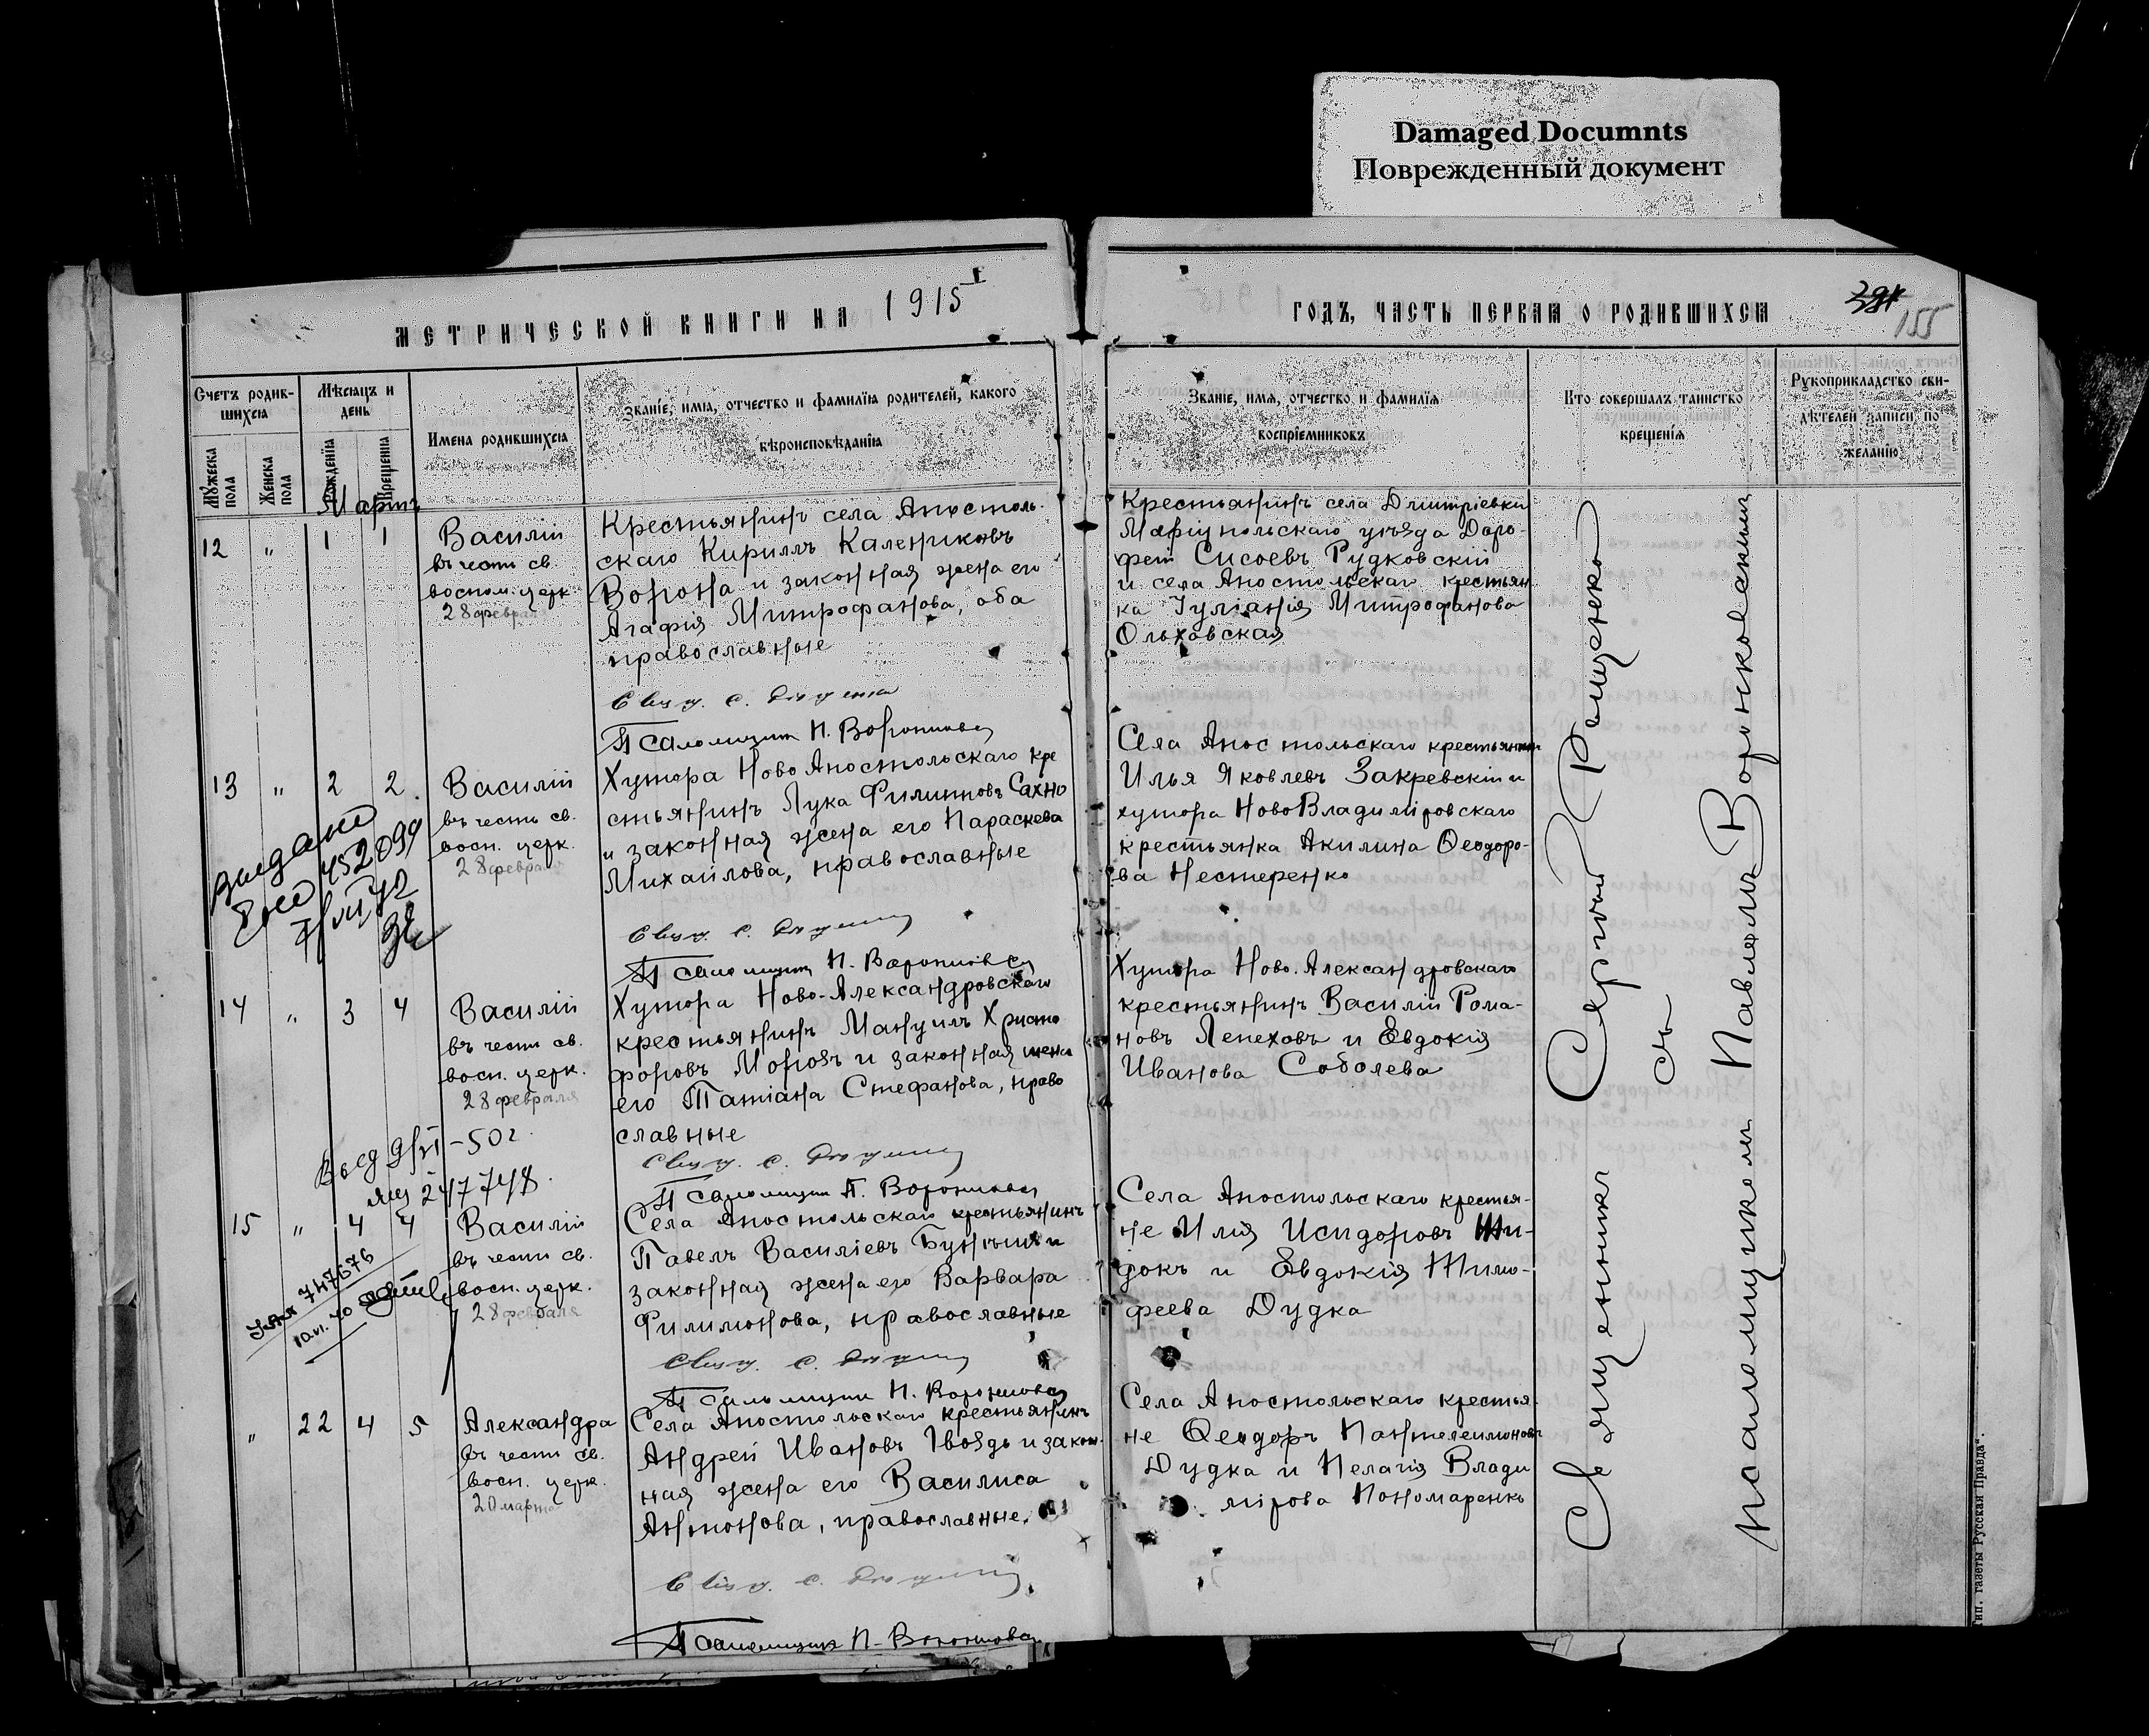 Damaged Documnts
Поврежденный документ
МЕТРИЧЕСКОЙ КНИГИ НА 1915
ГОДЪ, ЧАСТЬ ПЕРВАЯ О РОДИВШИХСЯ
155
Счетъ родив-
шихся
Мѣсяцъ и
день
Мужеска
пола
Женска
пола
Рожденія
Крещенія
Имена родившихся
Званіе, имя, отчество и фамилія родителей, какого
вѣроисповѣданія
Званіе, имя, отчество и фамилія
воспріемниковъ
Кто совершалъ таинство
крещенія
Рукоприкладство сви-
дѣтелей записи по
желанію
Мартъ
12 " 1 1
Василій
въ честь св.
воспом. церк.
28 февраля
Крестьянинъ села Апостоль-
скаго Кириллъ Калениковъ
Ворона и законная жена его
Агафія Митрофанова, оба
православные
Псаломщик П. Воронков
Крестьянинъ села Дмитріевки
Маріупольскаго уѣзда Доро-
фей Сисоевъ Рудковскій
и села Апостольскаго крестьян
ка Іуліанія Митрофанова
Ольховская
13 " 2 2.
Василій
въ честь св.
восп. церк.
28 февраля
452099
Хутора Ново Апостольскаго кре
стьянинъ Лука Филиповъ Сахно
и законная жена его Параскева
Михаилова, православные
Псаломщик П. Воронков
Села Апостольскаго крестьянин
Илья Яковлевъ Закревскій и
хутора НовоВладиміровскаго
крестьянка Акилина Ѳеодоро-
ва Нестеренко
14 " 3 4
Василій
въ честь св.
восп. церк.
28 февраля
-50г.
247748.
Хутора Ново-Александровскаго
крестьянинъ Мануилъ Христо
форовъ Морозъ и законная жена
его Татіана Стефанова, право
славные
Псаломщик П. Воронков
Хутора Ново-Александровскаго
крестьянинъ Василій Рома-
новъ Лепеховъ и Евдокія
Иванова Соболева
15 " 4 4
Василій
въ честь св.
восп. церк.
28 февраля
747676
Села Апостольскаго крестьянинъ
Павелъ Василіевъ и
законная жена его Варвара
Филимонова, православные
Псаломщик П. Воронков
Села Апостольскаго крестья-
не Илія Исидоровъ
и Евдокія Тимо-
феева Дудка
" 22 4 5
Александра
въ честь св.
восп. церк.
20 марта
Села Апостольскаго крестьянинъ
Андрей Ивановъ Гвоздь и закон-
ная жена его Василиса
Антонова, православные.
Псаломщик П. Воронков
Села Апостольскаго крестья-
не Ѳеодоръ Пантелеимоновъ
Дудка и Пелагія Влади
мірова Пономаренко
Священникъ Сергій
съ
псаломщикомъ Павломъ Воронковскимъ
Тип. газеты „Русская Правда“.